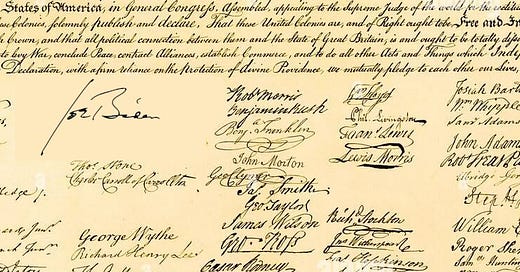 States of America, in General Congress, Assembled, appealing to the Supreme Judge of the world for the rectitu
Colonies, solemnly publish and declare, That these United Colonies are, and of Right ought to be Free and In
Crown, and that all political connection between them and the State of Great Britain, is and ought to be totally disso
to levy War, conclude Peace, contract Alliances, establish Commerce, and to do all other Acts and Things which Indep
Declaration, with a firm reliance on the Protection of divine Providence, we mutually pledge to each other our Lives,
Joe Biden
Thos. Stone
Charles Carroll of Carrollton
George Wythe
Richard Henry Lee
Robt Morris
Benjamin Rush
Benj. Franklin
John Morton
Geo Clymer
Jas. Smith
Geo. Taylor
James Wilson
Geo. Ross
Caesar Rodney
Phil. Livingston
Frans. Lewis
Lewis Morris
Richd. Stockton
Jno Witherspoon
Fras. Hopkinson
Josiah Bart
Wm Whipple
Saml Adams
John Adams
Robt Treat P
Elbridge Ger
Step. H
William
Roger She
Saml Hunting